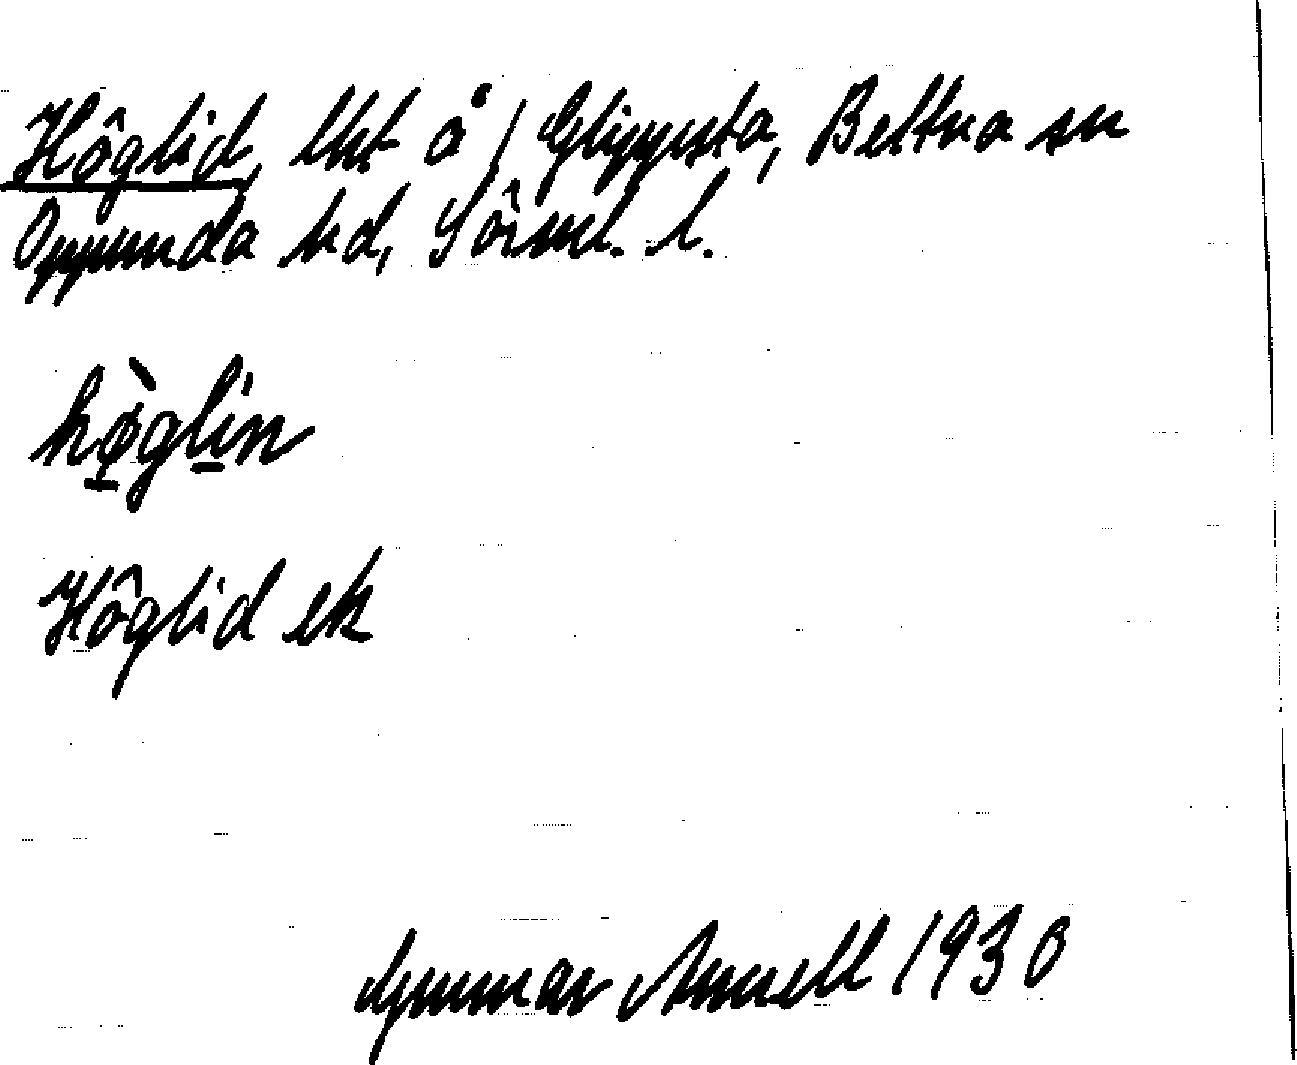 Höglid, lht å 1 Glippsta, Bettna sn
Oppunda hd, Sörml. l.
hø̀glin
Höglid ek
Gunnar Annell 1930